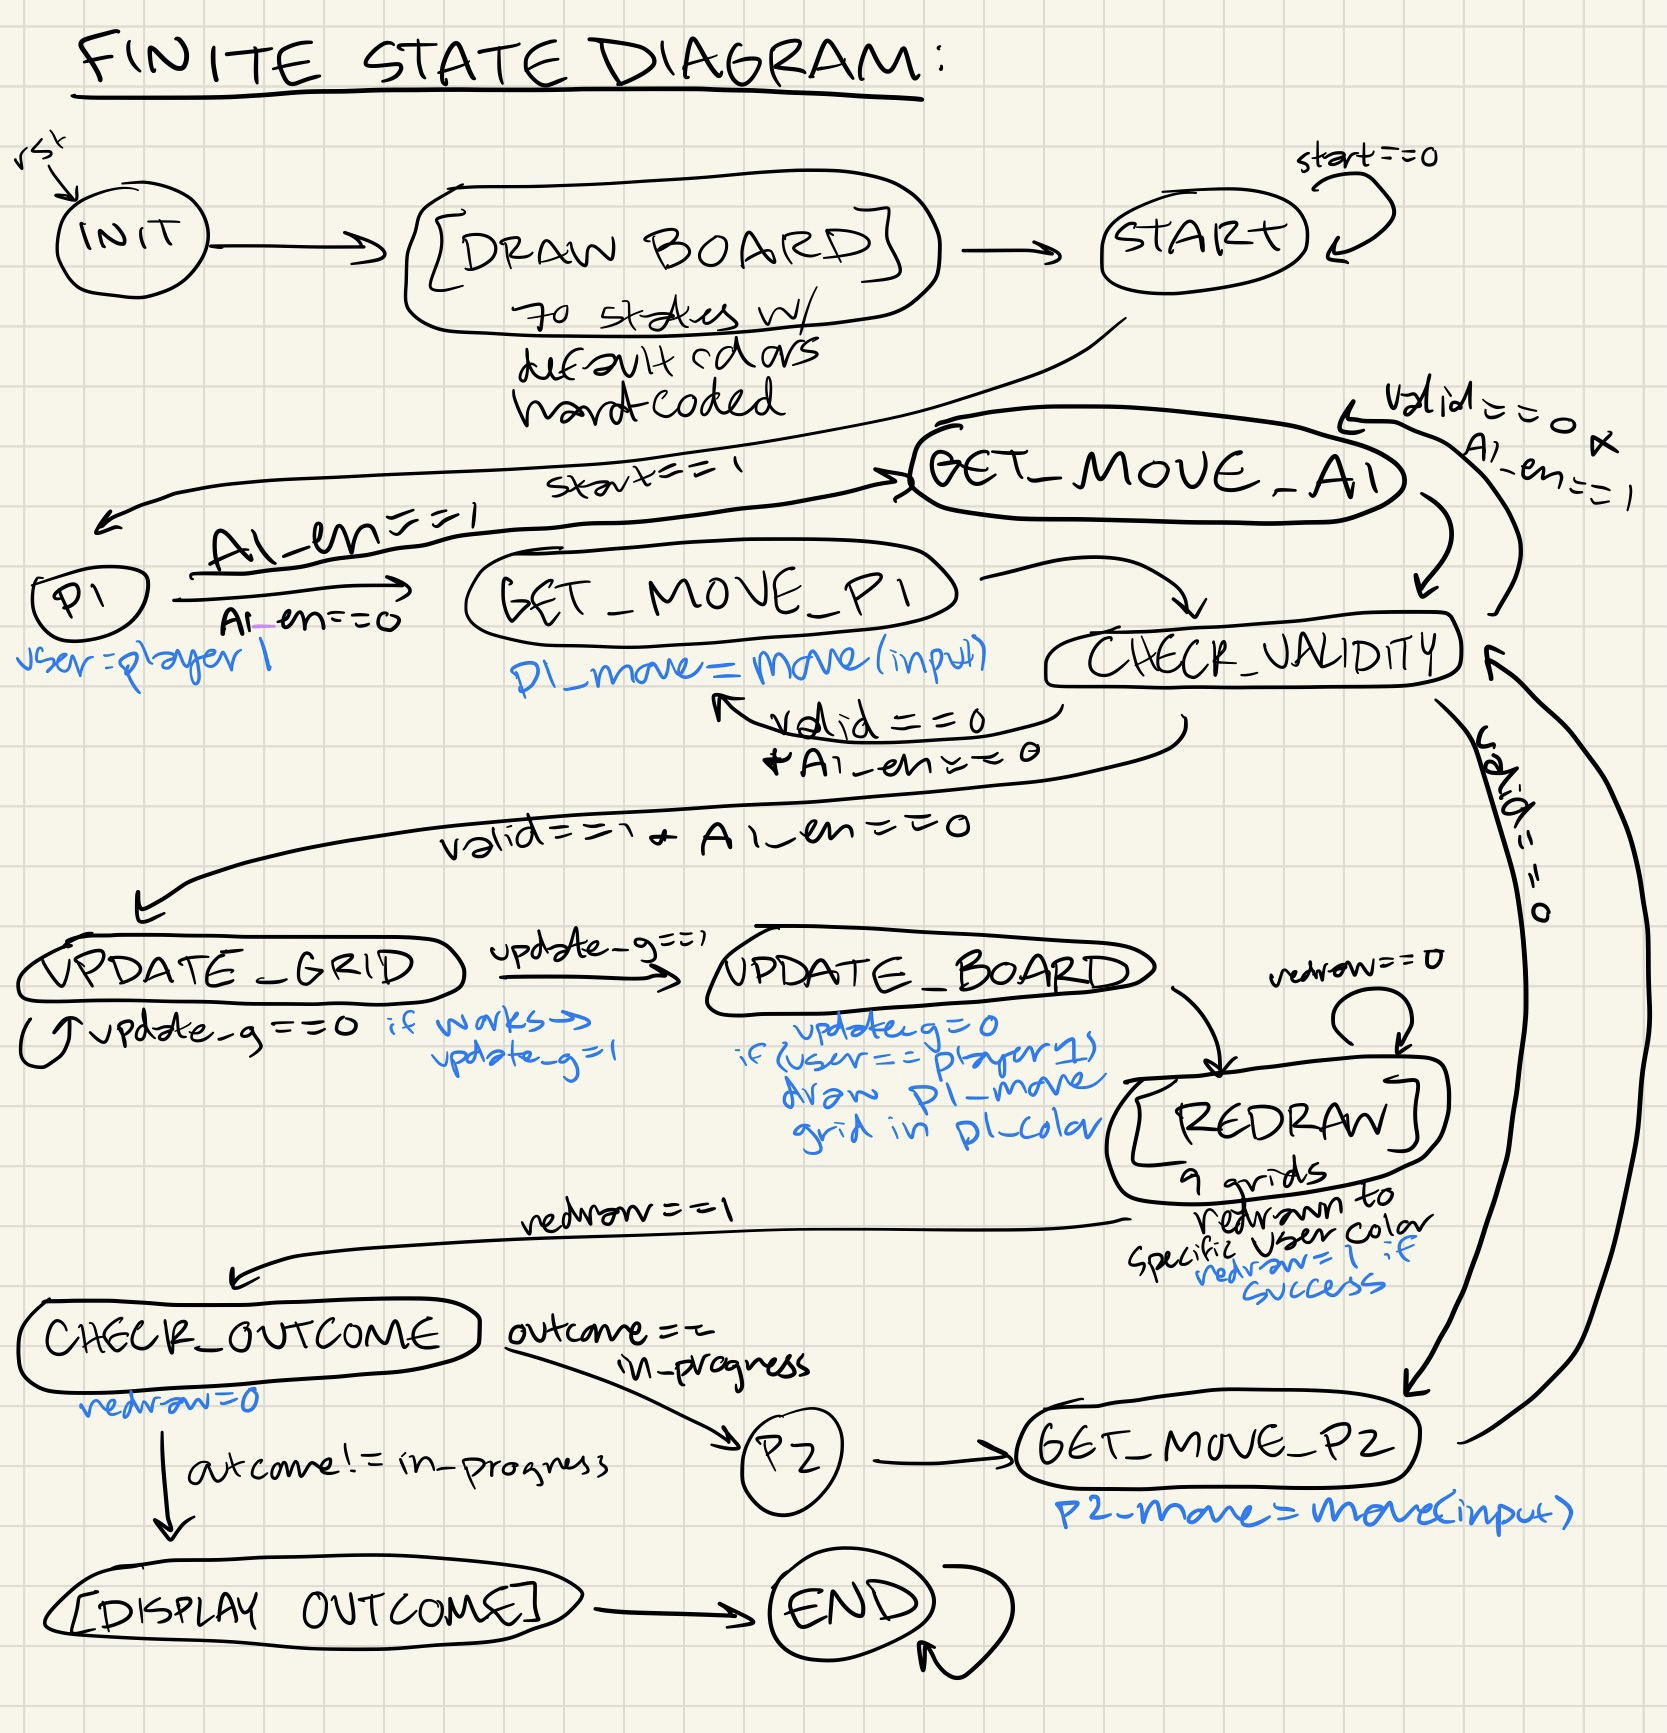 FINITE STATE DIAGRAM:
rst
INIT
[DRAW BOARD]
70 states w/
default colors
hardcoded
START
start==0
start==1
GET_MOVE_AI
valid==0 &
AI_en==1
AI_en==1
P1
AI_en==0
user=player1
GET_MOVE_P1
p1_move=move(input)
CHECK_VALIDITY
valid==0
+ AI_en==0
valid==1 + AI_en==0
valid==0
UPDATE_GRID
update_g==0
if works →
update_g=1
update_g==1
UPDATE_BOARD
update_g=0
if (user==player1)
draw p1_move
grid in p1_color
redraw==0
[REDRAW]
9 grids
redrawn to
specific user color
redraw=1 if
success
redraw==1
CHECK_OUTCOME
redraw=0
outcome==
in_progress
P2
GET_MOVE_P2
P2_move=move(input)
outcome!=in_progress
[DISPLAY OUTCOME]
END